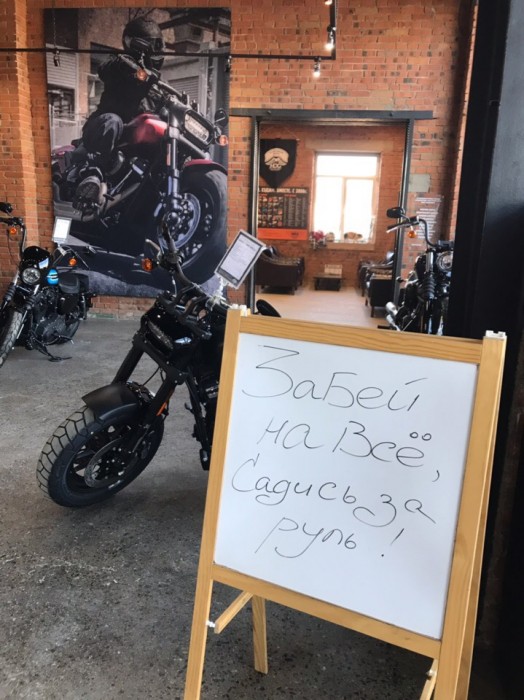 ЗаБей
на Всё,
Садись за
руль!